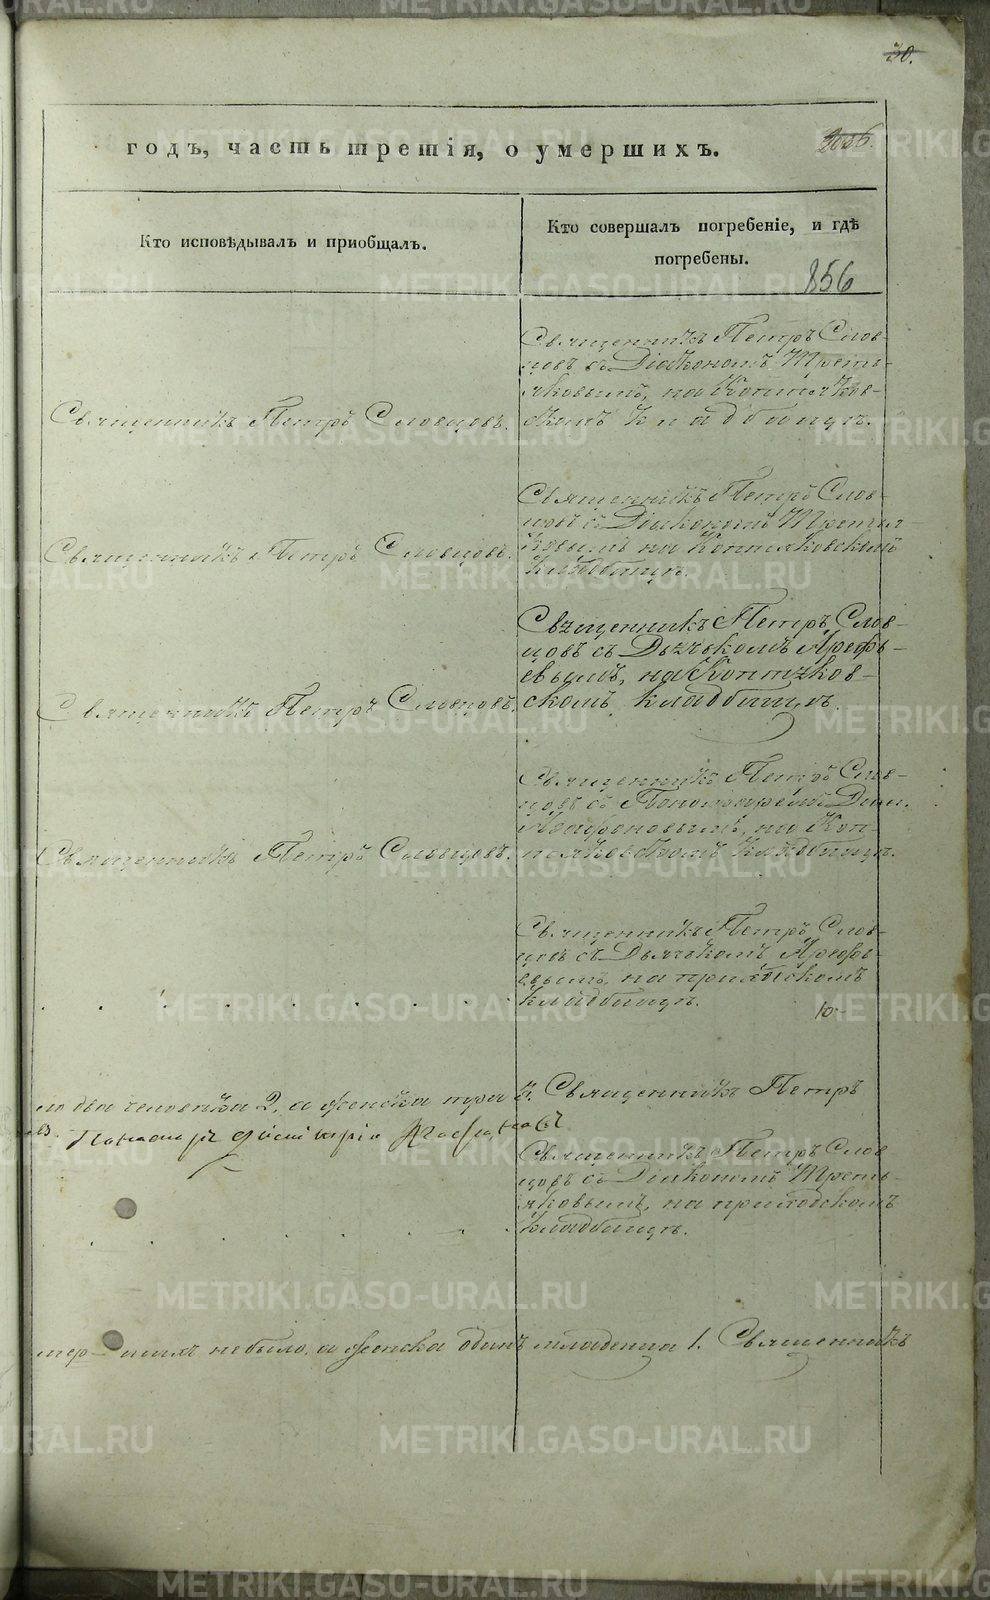 30.
годъ, часть третія, о умершихъ.
Кто исповѣдывалъ и пріобщалъ.
Кто совершалъ погребеніе, и гдѣ
погребены.
856
Священникъ Петръ Словцовъ.
Священникъ Петръ Слов-
цовъ съ Діакономъ Треть-
яковымъ, на Коптяков-
скомъ кладбищѣ.
Священникъ Петръ Словцовъ.
Священникъ Петръ Слов-
цовъ съ Діакономъ Третья-
ковымъ на Коптяковскомъ
кладбищѣ.
Священникъ Петръ Словцовъ.
Священникъ Петръ Слов-
цовъ съ Дьячкомъ Арефь-
евымъ, на Коптяков-
скомъ кладбищѣ.
Священникъ Петръ Словцовъ.
Священникъ Петръ Слов-
цовъ съ Пономаремъ Дим.
на Коп-
тяковскомъ кладбищѣ.
Священникъ Петръ Слов-
цовъ съ Дьячкомъ Арефь-
евымъ, на приходскомъ
кладбищѣ.
10
по два человѣка 2, а женска три 3. Священникъ Петръ
Пономарь Димитрій
Священникъ Петръ Слов
цовъ съ Діакономъ Треть-
яковымъ, на приходскомъ
кладбищѣ.
мер-шихъ небыло, а женска одинъ младенца 1. Священникъ
METRIKI.GASO-URAL.RU